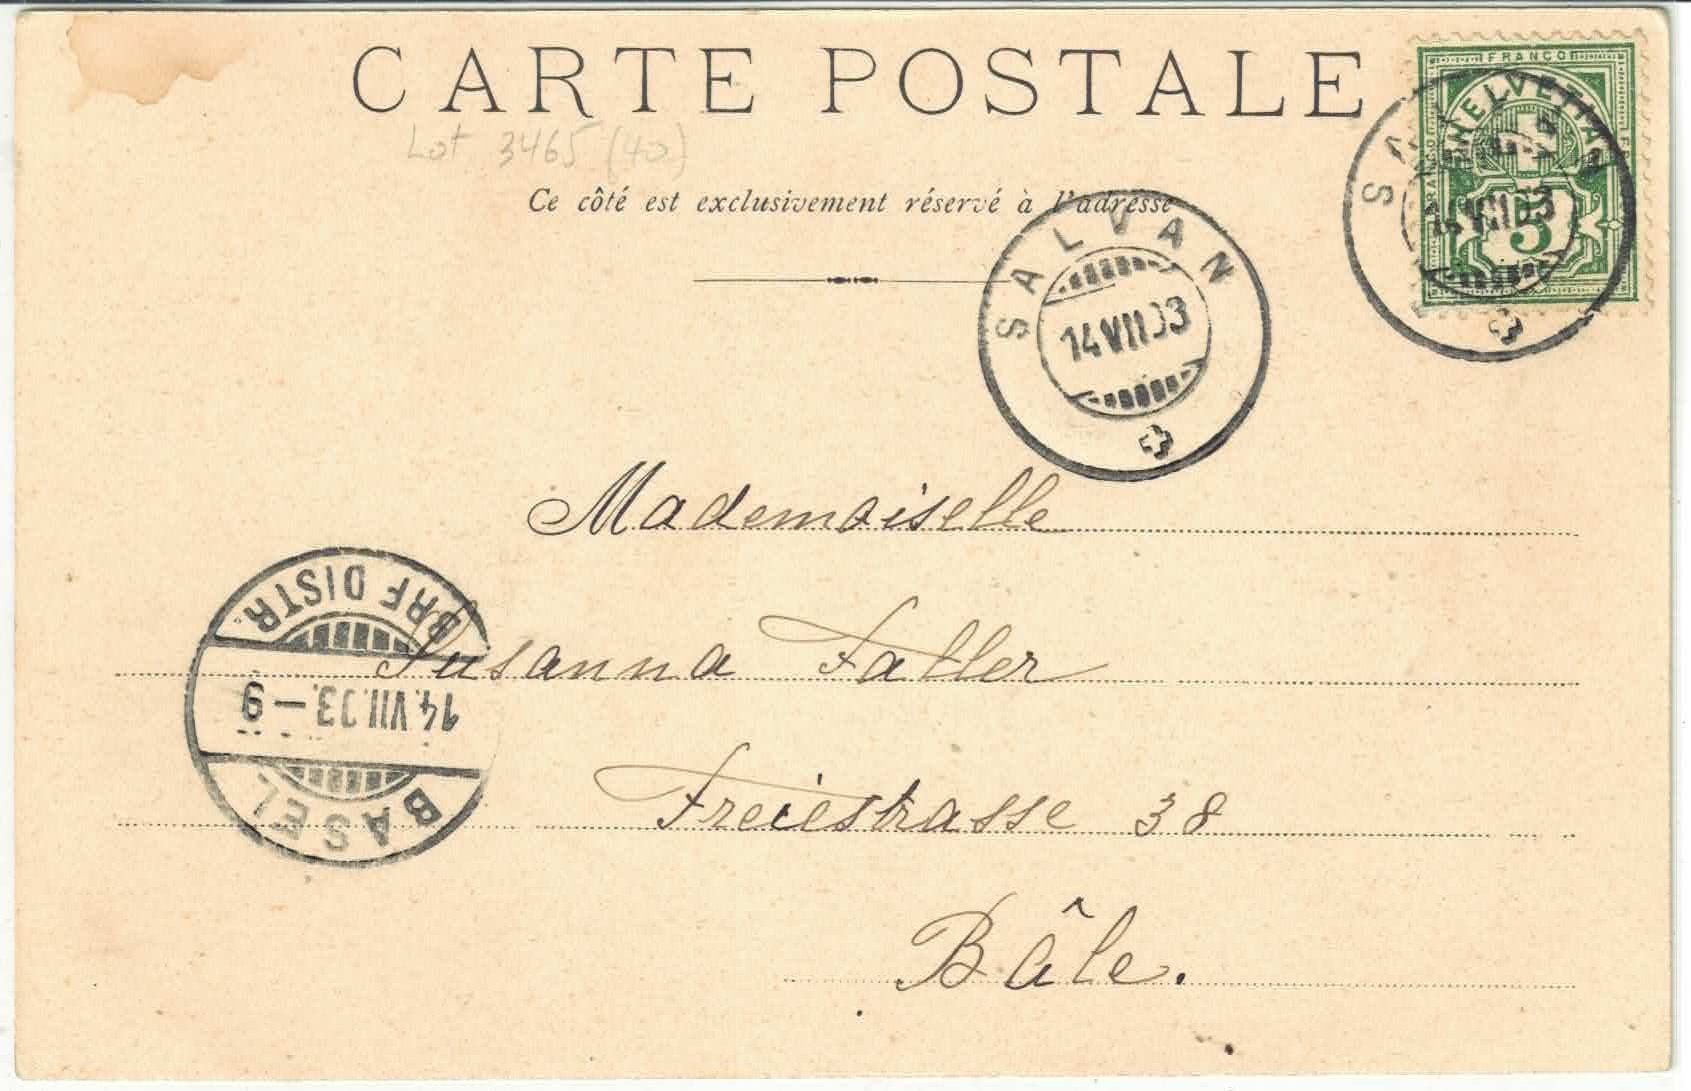 CARTE POSTALE
Lot 3465 (40)
Ce côté est exclusivement réservé à l'adresse
FRANCO
HELVETIA
5
SALVAN
14 VII 03
SALVAN
14 VII 03
Mademoiselle
Susanna Faller
Freiestrasse 38
Bâle.
BASEL
14.VII.03.–9
BRF DISTR.